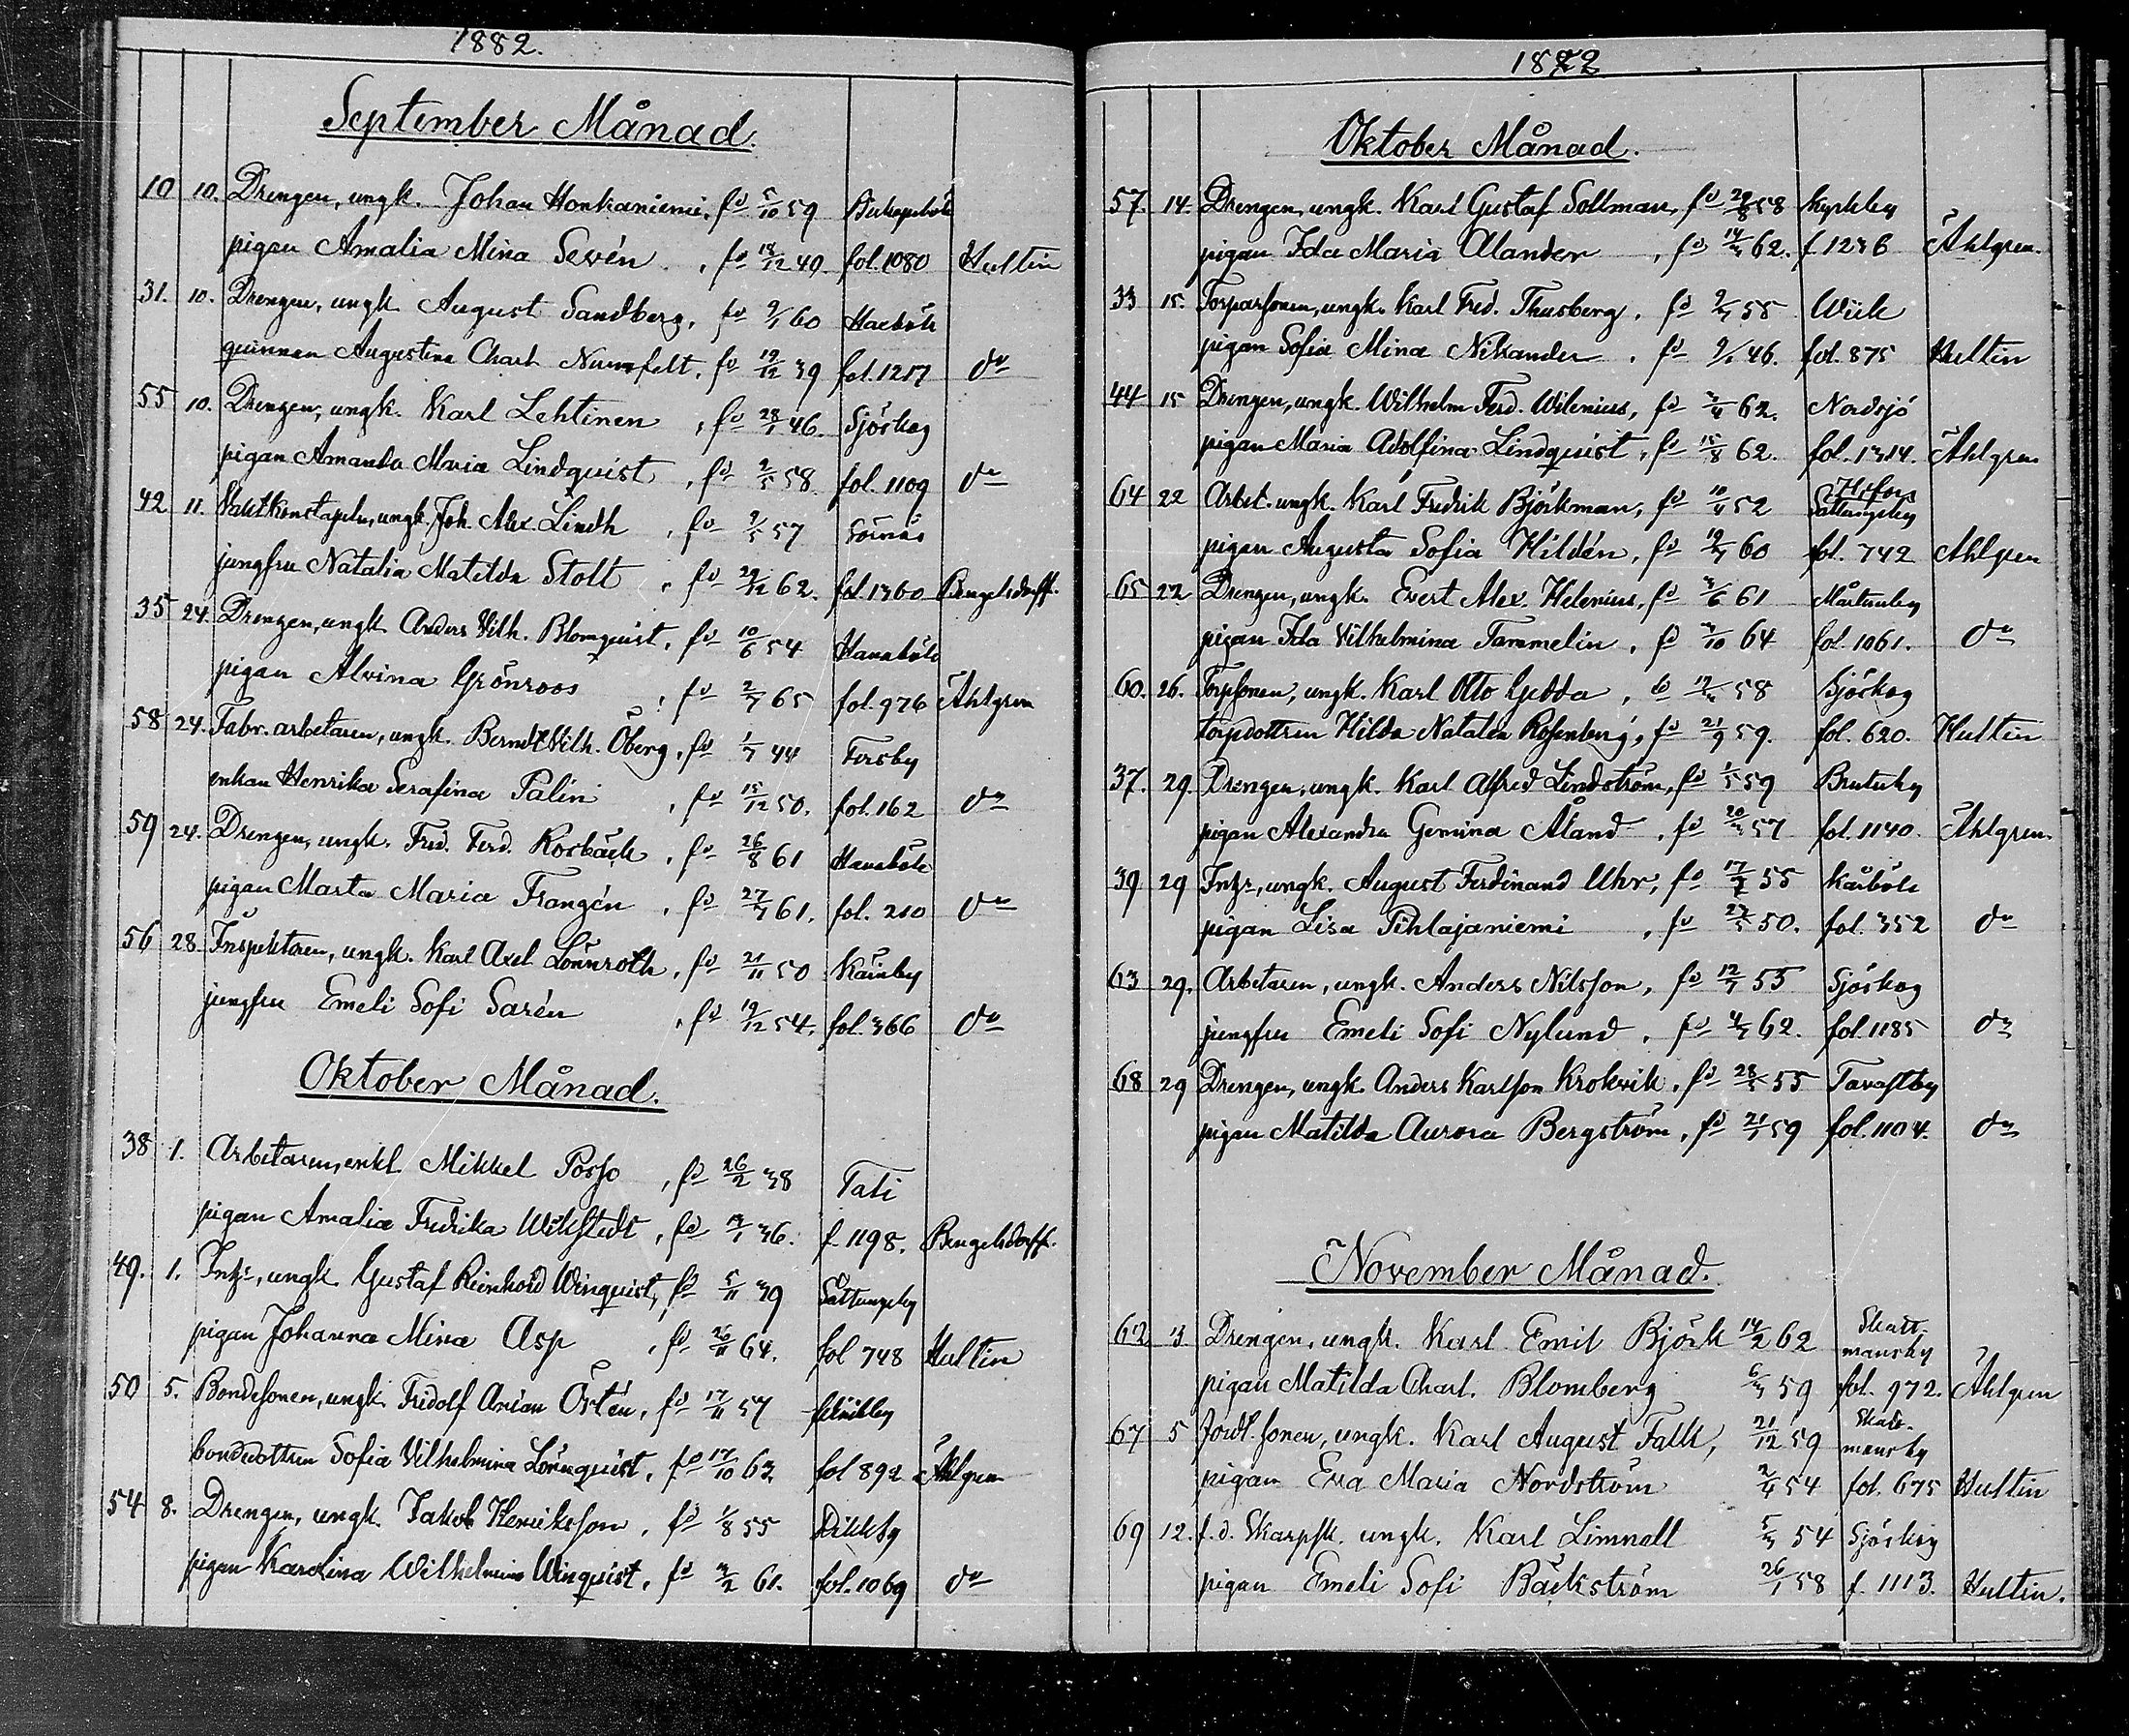 1882.
September Månad.
10 10. Drengen, ungk. Johan Honkaniemi, fd 5/10 59
pigan Amalia Mina Sevén, fd 18/12 40. fol. 1080 Hultin
31. 10. Drengen, ungk. August Sandberg, fd 9/1 60
qvinnan Augustina Charl. Nummfelt, fd 19/12 39 fol. 1217 do
55 10. Drengen, ungk. Karl Lehtinen, fd 28/1 46. Sjöskog
pigan Amanda Maria Lindquist, fd 2/5 58. fol. 1109 do
42 11. Vaktkonstapeln, ungk. Joh. Alex. Lindh, fd 9/5 57 Sörnäs
jungfru Natalia Matilda Stolt, fd 29/12 62. fol. 1360 Bengelsdorff.
35 24. Drengen, ungk. Anders Vilh. Blomquist, fd 10/6 54 Hanaböle
pigan Alvina Grönroos, fd 2/3 65 fol. 976 Åhlgren
58 24. Fabr. arbetaren, ungk. Berndt Vilh. Öberg, fd 1/7 44 Forsby
enkan Henrika Serafina Palin, fd 15/12 50. fol. 162 do
59 24. Drengen, ungk. Fred. Ferd. Rosbäck, fd 26/8 61 Hanaböle
pigan Marta Maria Frangén, fd 27/3 61. fol. 210 do
56 28. Inspektoren, ungk. Karl Axel Lönnroth, fd 21/11 50 Käinby
jungfru Emeli Sofi Sarén, fd 19/12 54. fol. 366 do
Oktober Månad.
38 1. Arbetaren, enkl. Mikkel Posso, fd 26/2 38 Tali
pigan Amalia Fredrika Wikstedt, fd 36. f. 1198. Bengelsdorff.
49. 1. Inhs, ungk. Gustaf Reinhold Winquist, fd 5/11 39 Sottungsby
pigan Johanna Mina Asp, fd 26/11 64. fol 748 Hultin
50 5. Bondesonen, ungk. Fridolf Arvian Östén, fd 17/11 57
bondedottren Sofia Vilhelmina Lönnquist, fd 17/10 63 fol 892 Åhlgren
54 8. Drengen, ungk. Jakob Henriksson, fd 1/8 55 Dikkby
pigan Karolina Wilhelmina Winquist, fd 3/2 61. fol. 1069 do
1882
Oktober Månad.
57. 14. Drengen, ungk. Karl Gustaf Sollman, fd 29/8 58 Kyrkby
pigan Ida Maria Alander, fd 14/3 62. f. 1236 Åhlgren.
33 15. Torparsonen, ungk. Karl Fred. Thusberg, fd 2/3 55 Wiik
pigan Sofia Mina Nikander, fd 9/1 46. fol. 875 Hultin
44 15 Drengen, ungk. Wilhelm Ferd. Wilenius, fd 3/4 62. Nordsjö
pigan Maria Adolfina Lindquist, fd 15/8 62. fol. 1314. Åhlgren
64 22 Arbet. ungk. Karl Fredrik Björkman, fd 10/4 52 H:fors Sottungsby
pigan Augusta Sofia Hildén, fd 19/3 60 fol. 742 Ahlgren
65 22 Drengen, ungk. Evert Alex. Helenius, fd 3/6 61 Mårtensby
pigan Ida Vilhelmina Tammelin, fd 3/10 64 fol. 1061. do
60. 26. Torpsonen, ungk. Karl Otto Gedda, fd 12/3 58 Sjöskog
torpdottren Hilda Natalia Rosenberg, fd 21/9 59. fol. 620. Hultin
37. 29. Drengen, ungk. Karl Alfred Lindström, fd 1/5 59 Brutuby
pigan Alexandra Gemina Åland, fd 20/3 57 fol. 1140. Åhlgren.
39 29 Inhs, ungk. August Ferdinand Uhr, fd 17/7 55 Kårböle
pigan Lisa Pihlajaniemi, fd 23/5 50. fol. 352 do
63 29. Arbetaren, ungk. Anders Nilsson, fd 12/7 55 Sjöskog
jungfru Emeli Sofi Nylund, fd 4/3 62. fol. 1185 do
68 29 Drengen, ungk. Anders Karlsson Krokvik, fd 28/5 55 Tavastby
pigan Matilda Aurora Bergström, fd 21/1 59 fol. 1104. do
November Månad.
62 3 Drengen, ungk. Karl Emil Björk 14/2 62 Skattmansby
pigan Matilda Charl. Blomberg 6/3 59 fol. 972. Åhlgren
67 5 Jordt. sonen, ungk. Karl August Falk, 21/12 59 Skattmansby
pigan Eva Maria Nordström 2/4 54 fol. 675 Hultin
69 12. f.d. Skarpsk. ungk. Karl Limnell 5/3 54 Sjöskog
pigan Emeli Sofi Bäckström 26/1 58 f. 1113. Hultin.